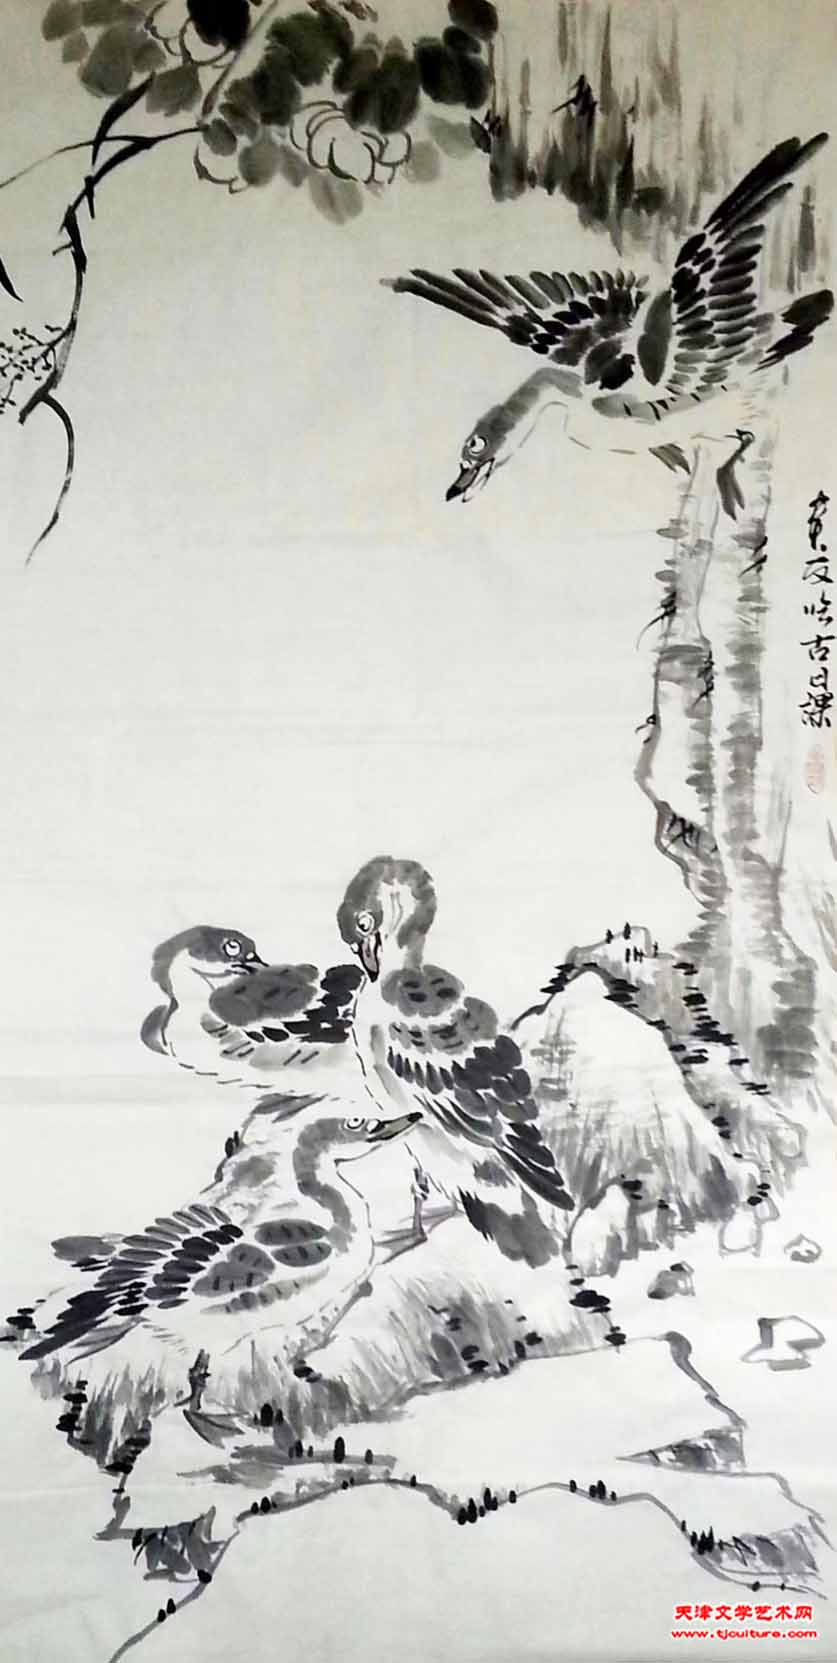 友临古日课
天津文学艺术网
www.tjculture.com